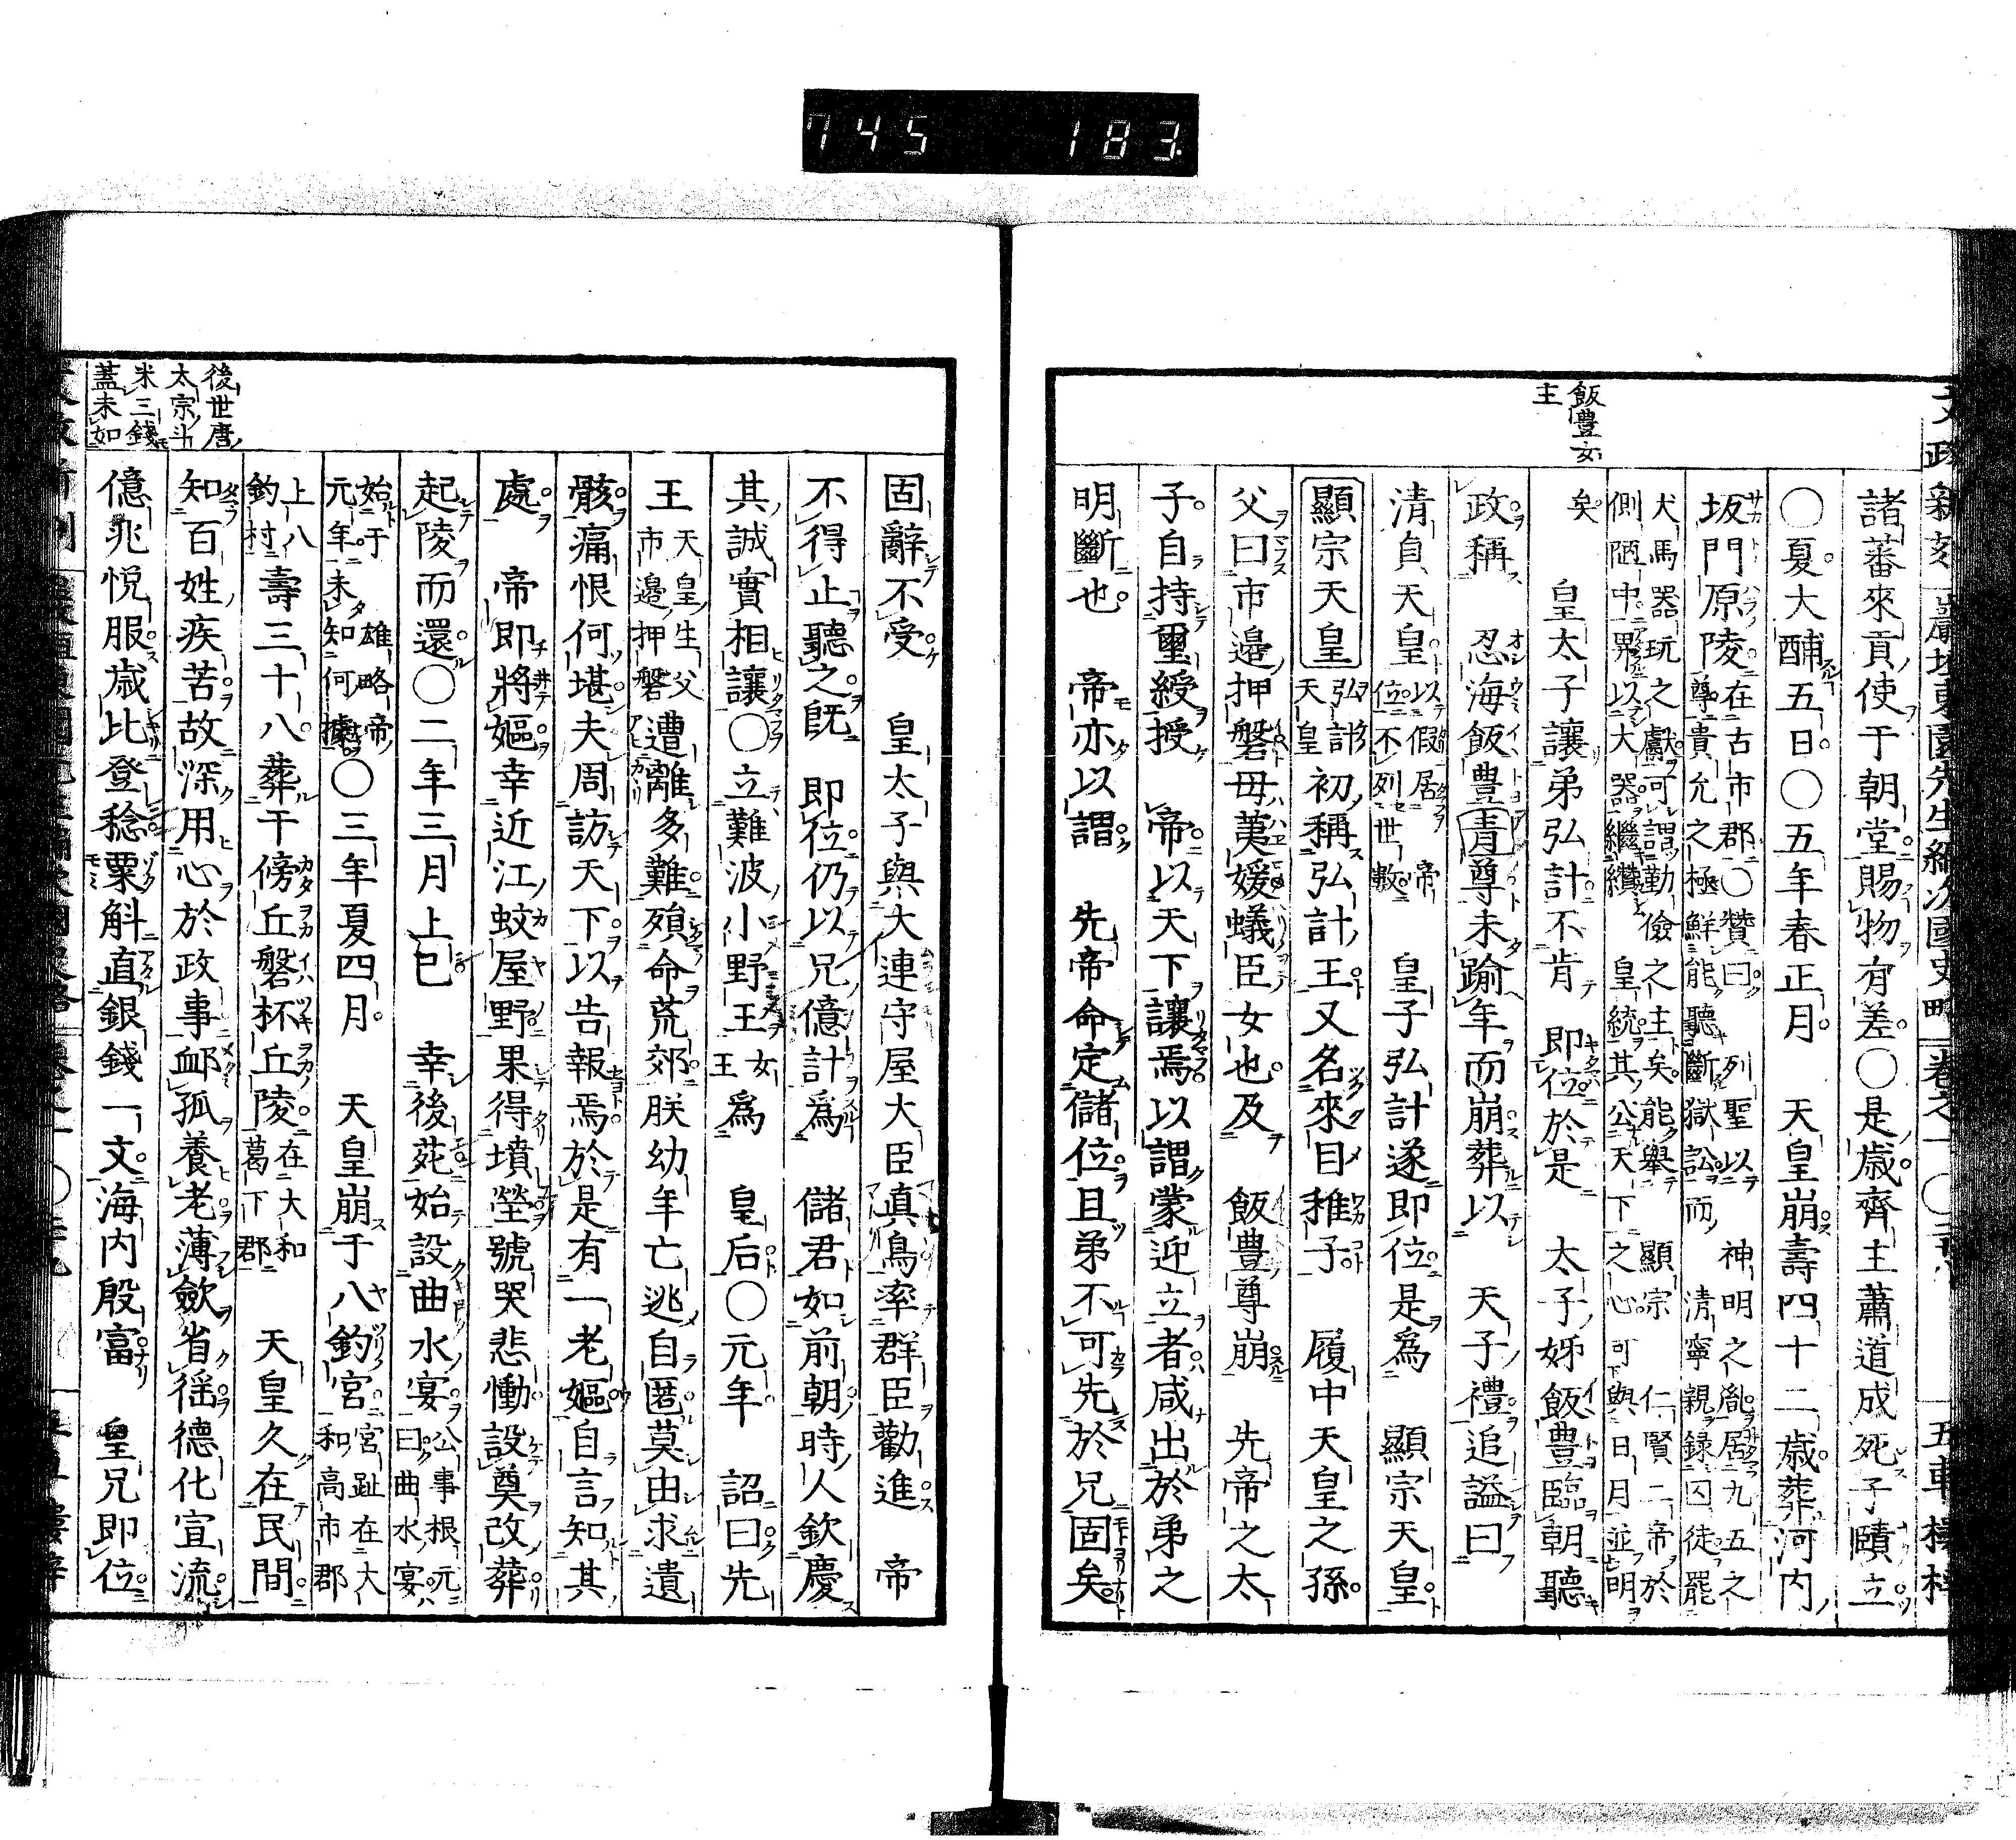 745 183
飯豊女
主
諸蕃來貢使于朝堂賜物有差○是歳齊主蕭道成死子賾立
○夏大酺五日○五年春正月 天皇崩壽四十二歳葬河内
坂門原陵在古市郡○賛曰 列聖以 神明之胤居九五之
尊貴允之極鮮能聽斷獄訟而 清寧親録囚徒罷
犬馬器玩之獻可謂勤儉之主矣能舉 顯宗仁賢二帝於
側陋中畀以大器繼纉 皇統其公天下之心可與日月並明
矣 皇太子讓弟弘計不肯 即位於是 太子姊飯豊臨朝聽
政稱 忍海飯豊青尊未踰年而崩葬以 天子禮追謚曰
清貞天皇以假居
位不列世數 帝 皇子弘計遂即位是爲 顯宗天皇
顯宗天皇弘計
天皇初稱弘計王又名來目稚子 履中天皇之孫
父曰市邉押磐母荑媛蟻臣女也及 飯豊尊崩 先帝之太
子自持璽綬授 帝以天下讓焉以謂蒙迎立者咸出於弟之
明斷也 帝亦以謂 先帝命定儲位且弟不可先於兄固矣
固辭不受 皇太子與大連守屋大臣真鳥率群臣勸進 帝
不得止聽之既 即位仍以兄億計爲 儲君如前朝時人欽慶
其誠實相讓○立難波小野王女
王爲 皇后○元年 詔曰先
王天皇生父
市邉押磐遭離多難殞命荒郊朕幼年亡逃自匿莫由求遺
骸痛恨何堪夫周訪天下以告報焉於是有一老嫗自言知其
處 帝即將嫗幸近江蚊屋野果得墳塋號哭悲慟設奠改葬
起陵而還○二年三月上巳 幸後苑始設曲水宴公事根元
曰曲水宴
始于 雄略帝
元年未知何據○三年夏四月 天皇崩于八釣宮宮趾在大
和高市郡
上八
釣村壽三十八葬于傍丘磐杯丘陵在大和
葛下郡 天皇久在民間
知百姓疾苦故深用心於政事䘏孤養老薄歛省徭德化宣流
億兆悦服歳比登稔粟斛直銀錢一文海内殷富 皇兄即位
後世唐
太宗斗
米三錢
蓋未如